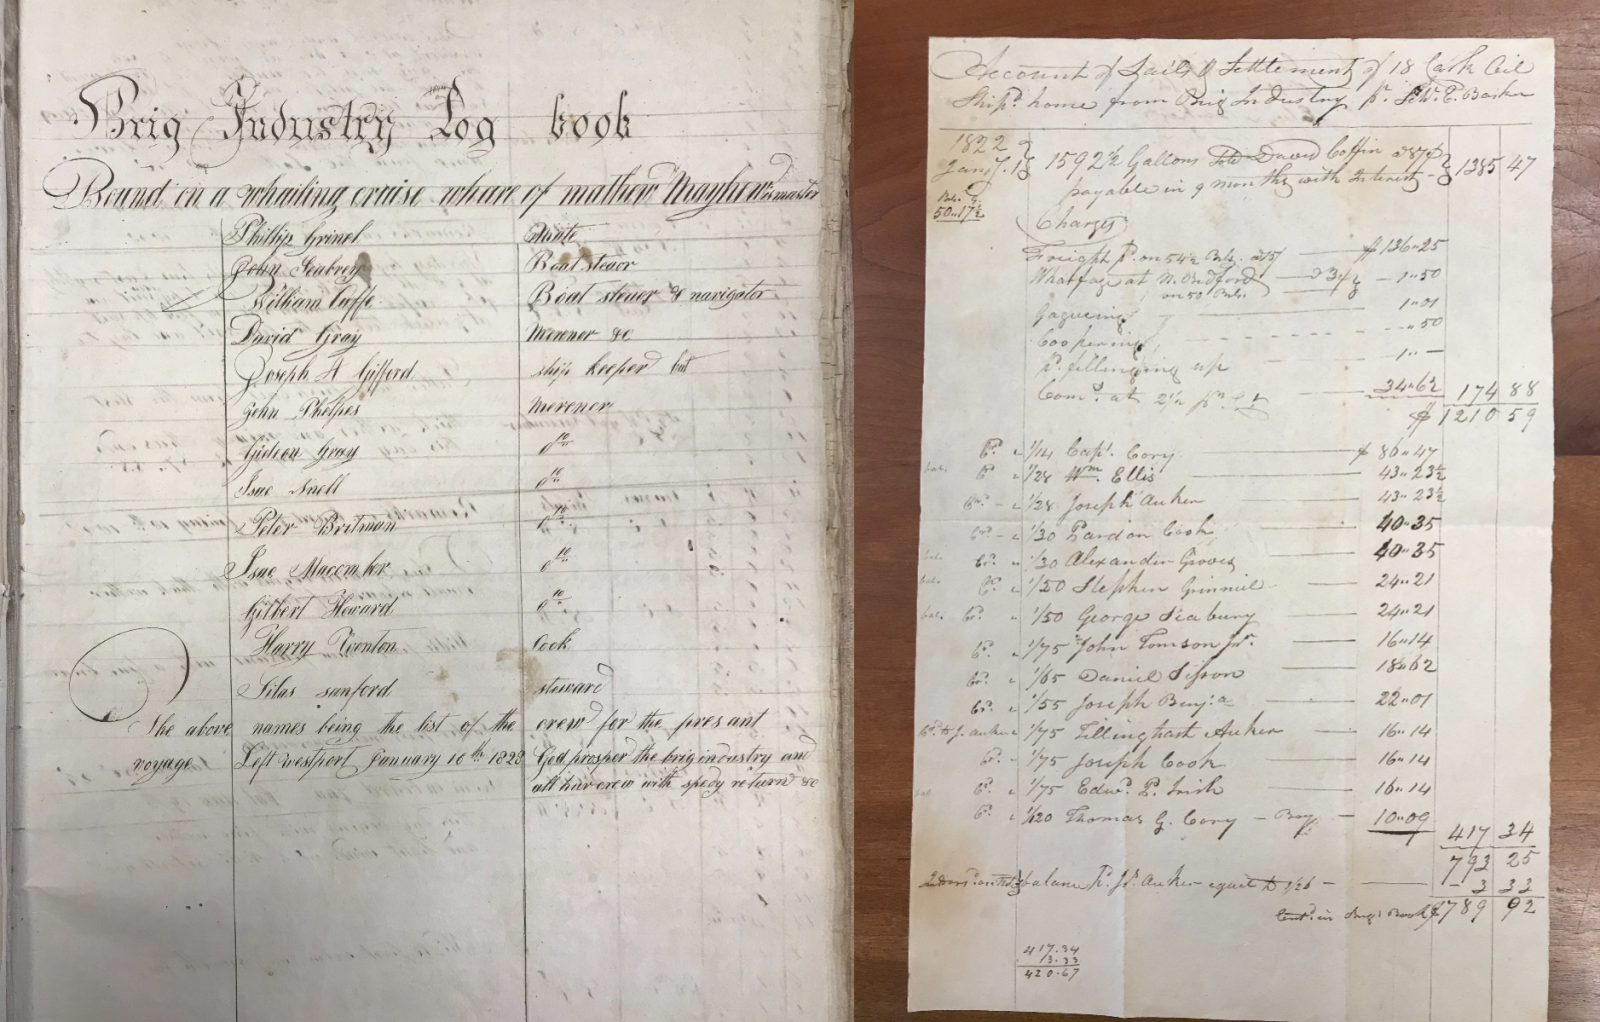 Brig Industry Log book
Bound on a whailing cruise whare of mathew Mayhew is master
Phillip Grinel Mate
John Seabrey Boat steuor
William Cuffe Boat steuer & navigator
David Gray Merener &c
Joseph A Gifford ship keeper but
John Phelpes Merener
Gideon Gray do
Isac Snell do
Peter Britman do
Isac Macomber do
Gilbert Howard do
Harry Cook
Silas sanford steward
The above names being the list of the crew for the presant
voyage Left westport January 10th 1828 God prosper the brig industry and
all hur crew with spedy return &c
Account of Sails & Settlement of 18 Cask Oil
Ship'd home from Brig Industry pr. Barker
1822
Jany. 1 1592½ Gallons David Coffin 87¢ 1385 47
payable in 9 months with Interest
50-17½
Charges
Freight on 54½ Bbls. $136"25
Wharfage at N. Bedford 1"50
on 50 Bbls.
Gagueing 1"01
Coopering "50
fillinging up 1"-
Com. at 2½ 34"62 174 88
$1210 59
1/14 Capt. Cory $ 86"47
bal. 1/28 Wm. Ellis 43"23½
1/28 Joseph Auken 43"23½
1/30 Pardon Cook 40"35
1/30 Alexander Groves 40"35
bal. 1/50 Stephen Grinnil 24"21
bal. 1/50 George Seabury 24"21
1/75 John Tomson Jr. 16"14
1/65 Daniel Sisson 18"62
1/55 Joseph Benj:a 22"01
1/75 Tillinghast Auken 16"14
1/75 Joseph Cook 16"14
1/75 Edwd. P. Irish 16"14
1/120 Thomas G. Cory - Boy 10"09
417 34
793 25
balance Auken equil to - 3 33
in Brigs Book $789 92
417.34
3.33
420.67